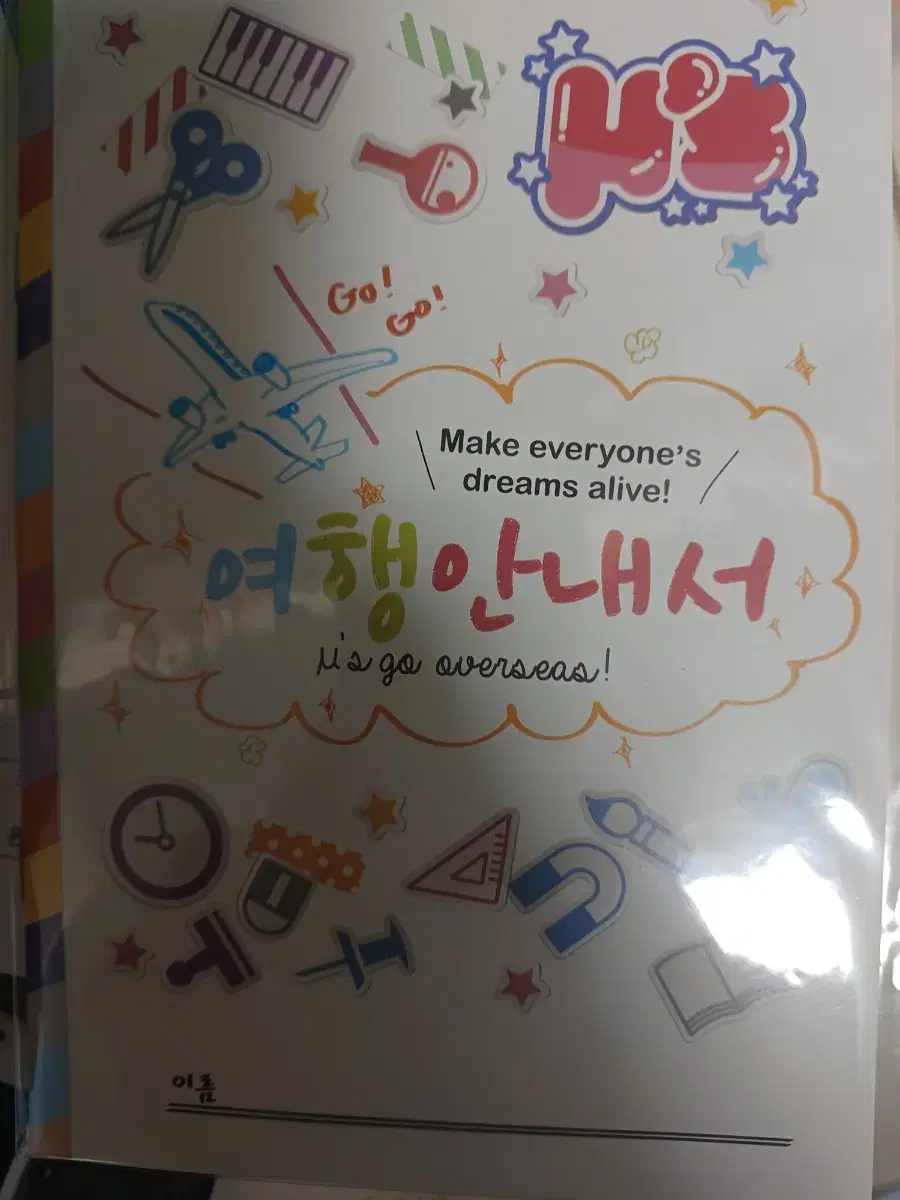 μ's
Go!
Go!
Make everyone's
dreams alive!
여행안내서
μ's go overseas!
이름